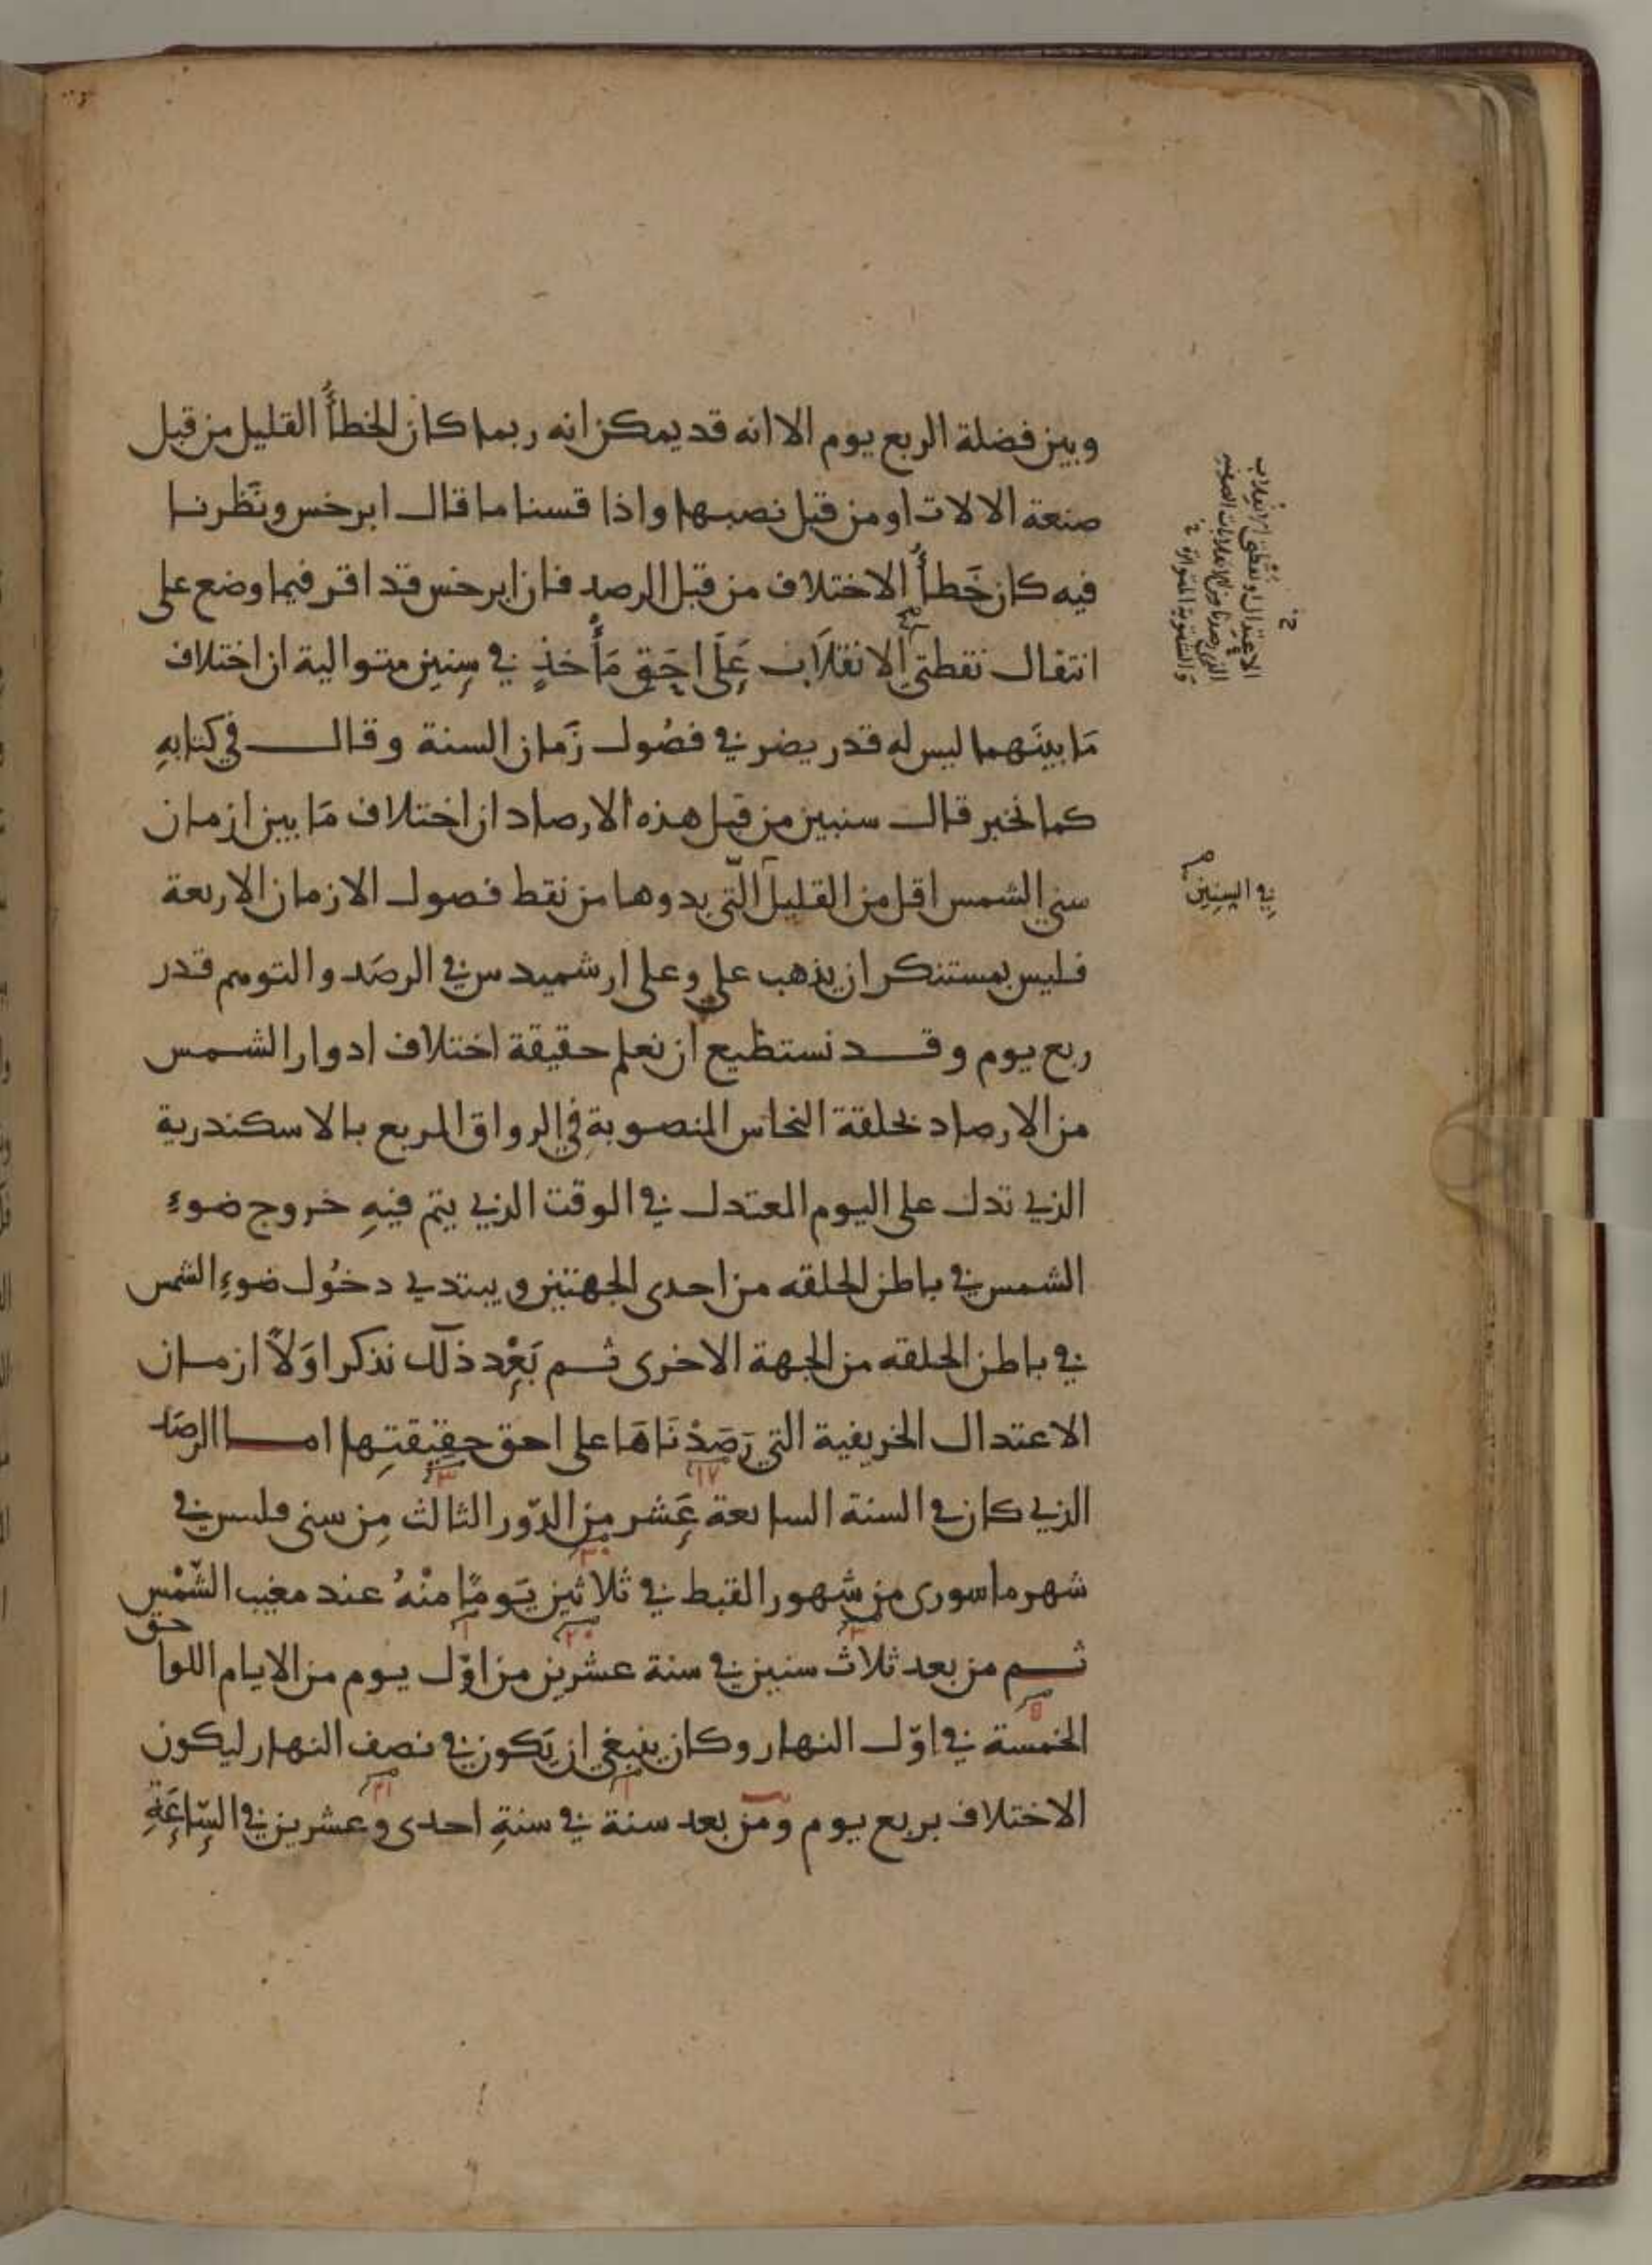 وبين فضلة الربع يوم الا انه قد يمكن انه ربما كان الخطأُ القليل من قبل
صنعة الالات او من قبل نصبها واذا قسنا ما قال ابرخس ونَظرنا
فيه كان خَطأُ الاختلاف من قبل الرصد فان ابرخس قد اقر فيما وضع على
انتقال نقطتي الانقلاب عَلَى احَقِّ مَأْخذٍ في سِنِين متوالية ان اختلاف
مَا بينَهما ليس له قدر يضر في فصُول زَمان السنة وقال في كتابهِ
كما نخبر قال سنبين من قبل هذه الارصاد ان اختلاف مَا بين ازمان
سني الشمس اقل من القليل الّتي بدوها من نقط فصول الازمان الاربعة
فليس بمستنكر ان يذهب علي وعلى ارشميدس في الرصَد والتوهم قدر
ربع يوم وقد نستطيع ان نعلم حقيقة اختلاف ادوار الشمس
من الارصاد بحلقة النحاس المنصوبةِ في الرواق المربع بالاسكندرية
الذي تدل على اليوم المعتدل في الوقت الذي يتم فيهِ خروج ضوءِ
الشمس في باطن الحلقه من احدى الجهتين ويبتدي دخُول ضوءِ الشمس
في باطن الحلقه من الجهة الاخرى ثم بَعْد ذلك نذكر اوَلاً ازمان
الاعتدال الخريفية التي رَصَدْنَاهَا على احق حقِيقتِها اما الرصَد
٣ ١٧
الذي كان في السنة السابعة عَشر مِن الدّور الثالث مِن سني فلبس في
٣٠
شهر ماسورى من شهور القبط في ثلاثين يَومًا منْهُ عند مغيب الشّمْس
٣ ٢٠ ١
ثم من بعد ثلاث سنين في سنة عشرين من اوّل يوم من الايام اللواحق
٥
الخمسة في اوّل النهار وكان ينبغي ان يَكون في نصف النهار ليكون
١ ٢١
الاختلاف بربع يوم ومن بعد سنة في سنةِ احدى وعشرين في السّاعَةِ
الاعتدال او نقطتي الانقلاب
الذي رصدنا من الانقلابات الصيفية
والشتوية المتواترة
في السِنِين